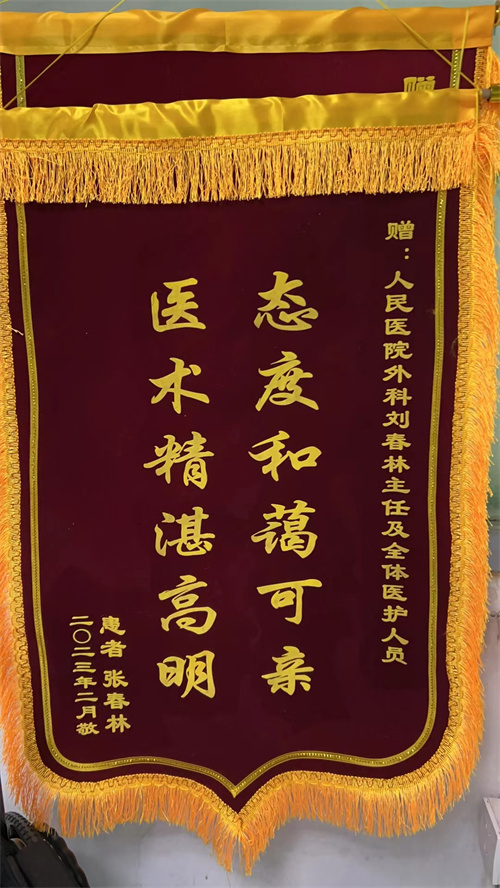 赠
赠：人民医院外科刘春林主任及全体医护人员
态度和蔼可亲
医术精湛高明
患者 张春林
二〇二三年二月敬